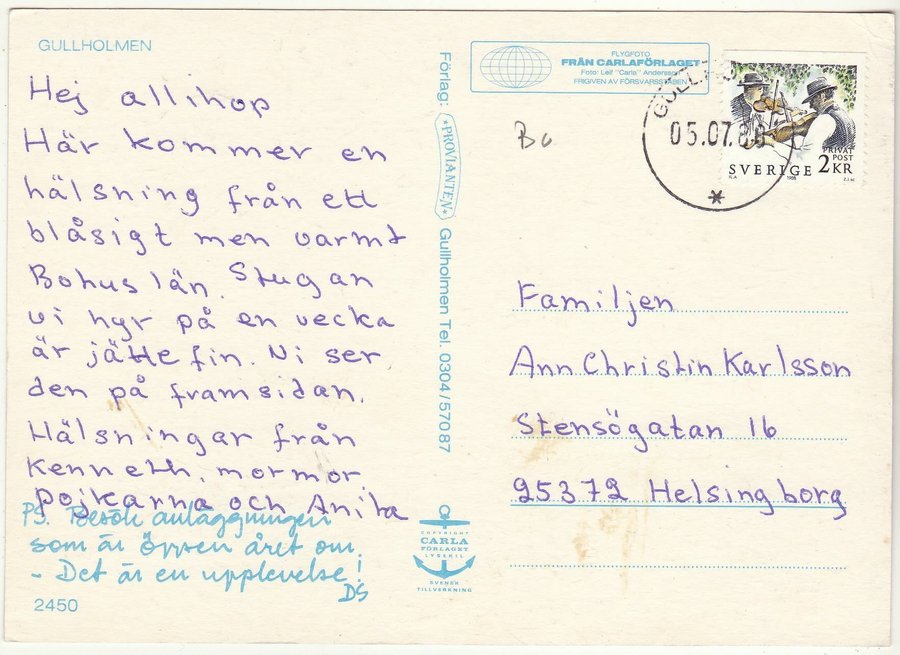 GULLHOLMEN
Hej allihop
Här kommer en
hälsning från ett
blåsigt men varmt
Bohuslän. Stugan
vi hyr på en vecka
är jättefin. Ni ser
den på framsidan.
Hälsningar från
Kenneth, mormor,
pojkarna och Anita
PS. Besök anläggningen
som är öppen året om.
- Det är en upplevelse!
DS
2450
Förlag: *PROVIANTEN* Gullholmen Tel. 0304/570 87
COPYRIGHT
CARLA
FÖRLAGET
LYSEKIL
SVENSK
TILLVERKNING
FLYGFOTO
FRÅN CARLAFÖRLAGET
Foto: Leif "Carla" Andersson
FRIGIVEN AV FÖRSVARSSTABEN
Bo
05.07.88
*
PRIVAT
POST
SVERIGE 2KR
1988
Familjen
Ann Christin Karlsson
Stensögatan 16
25372 Helsingborg